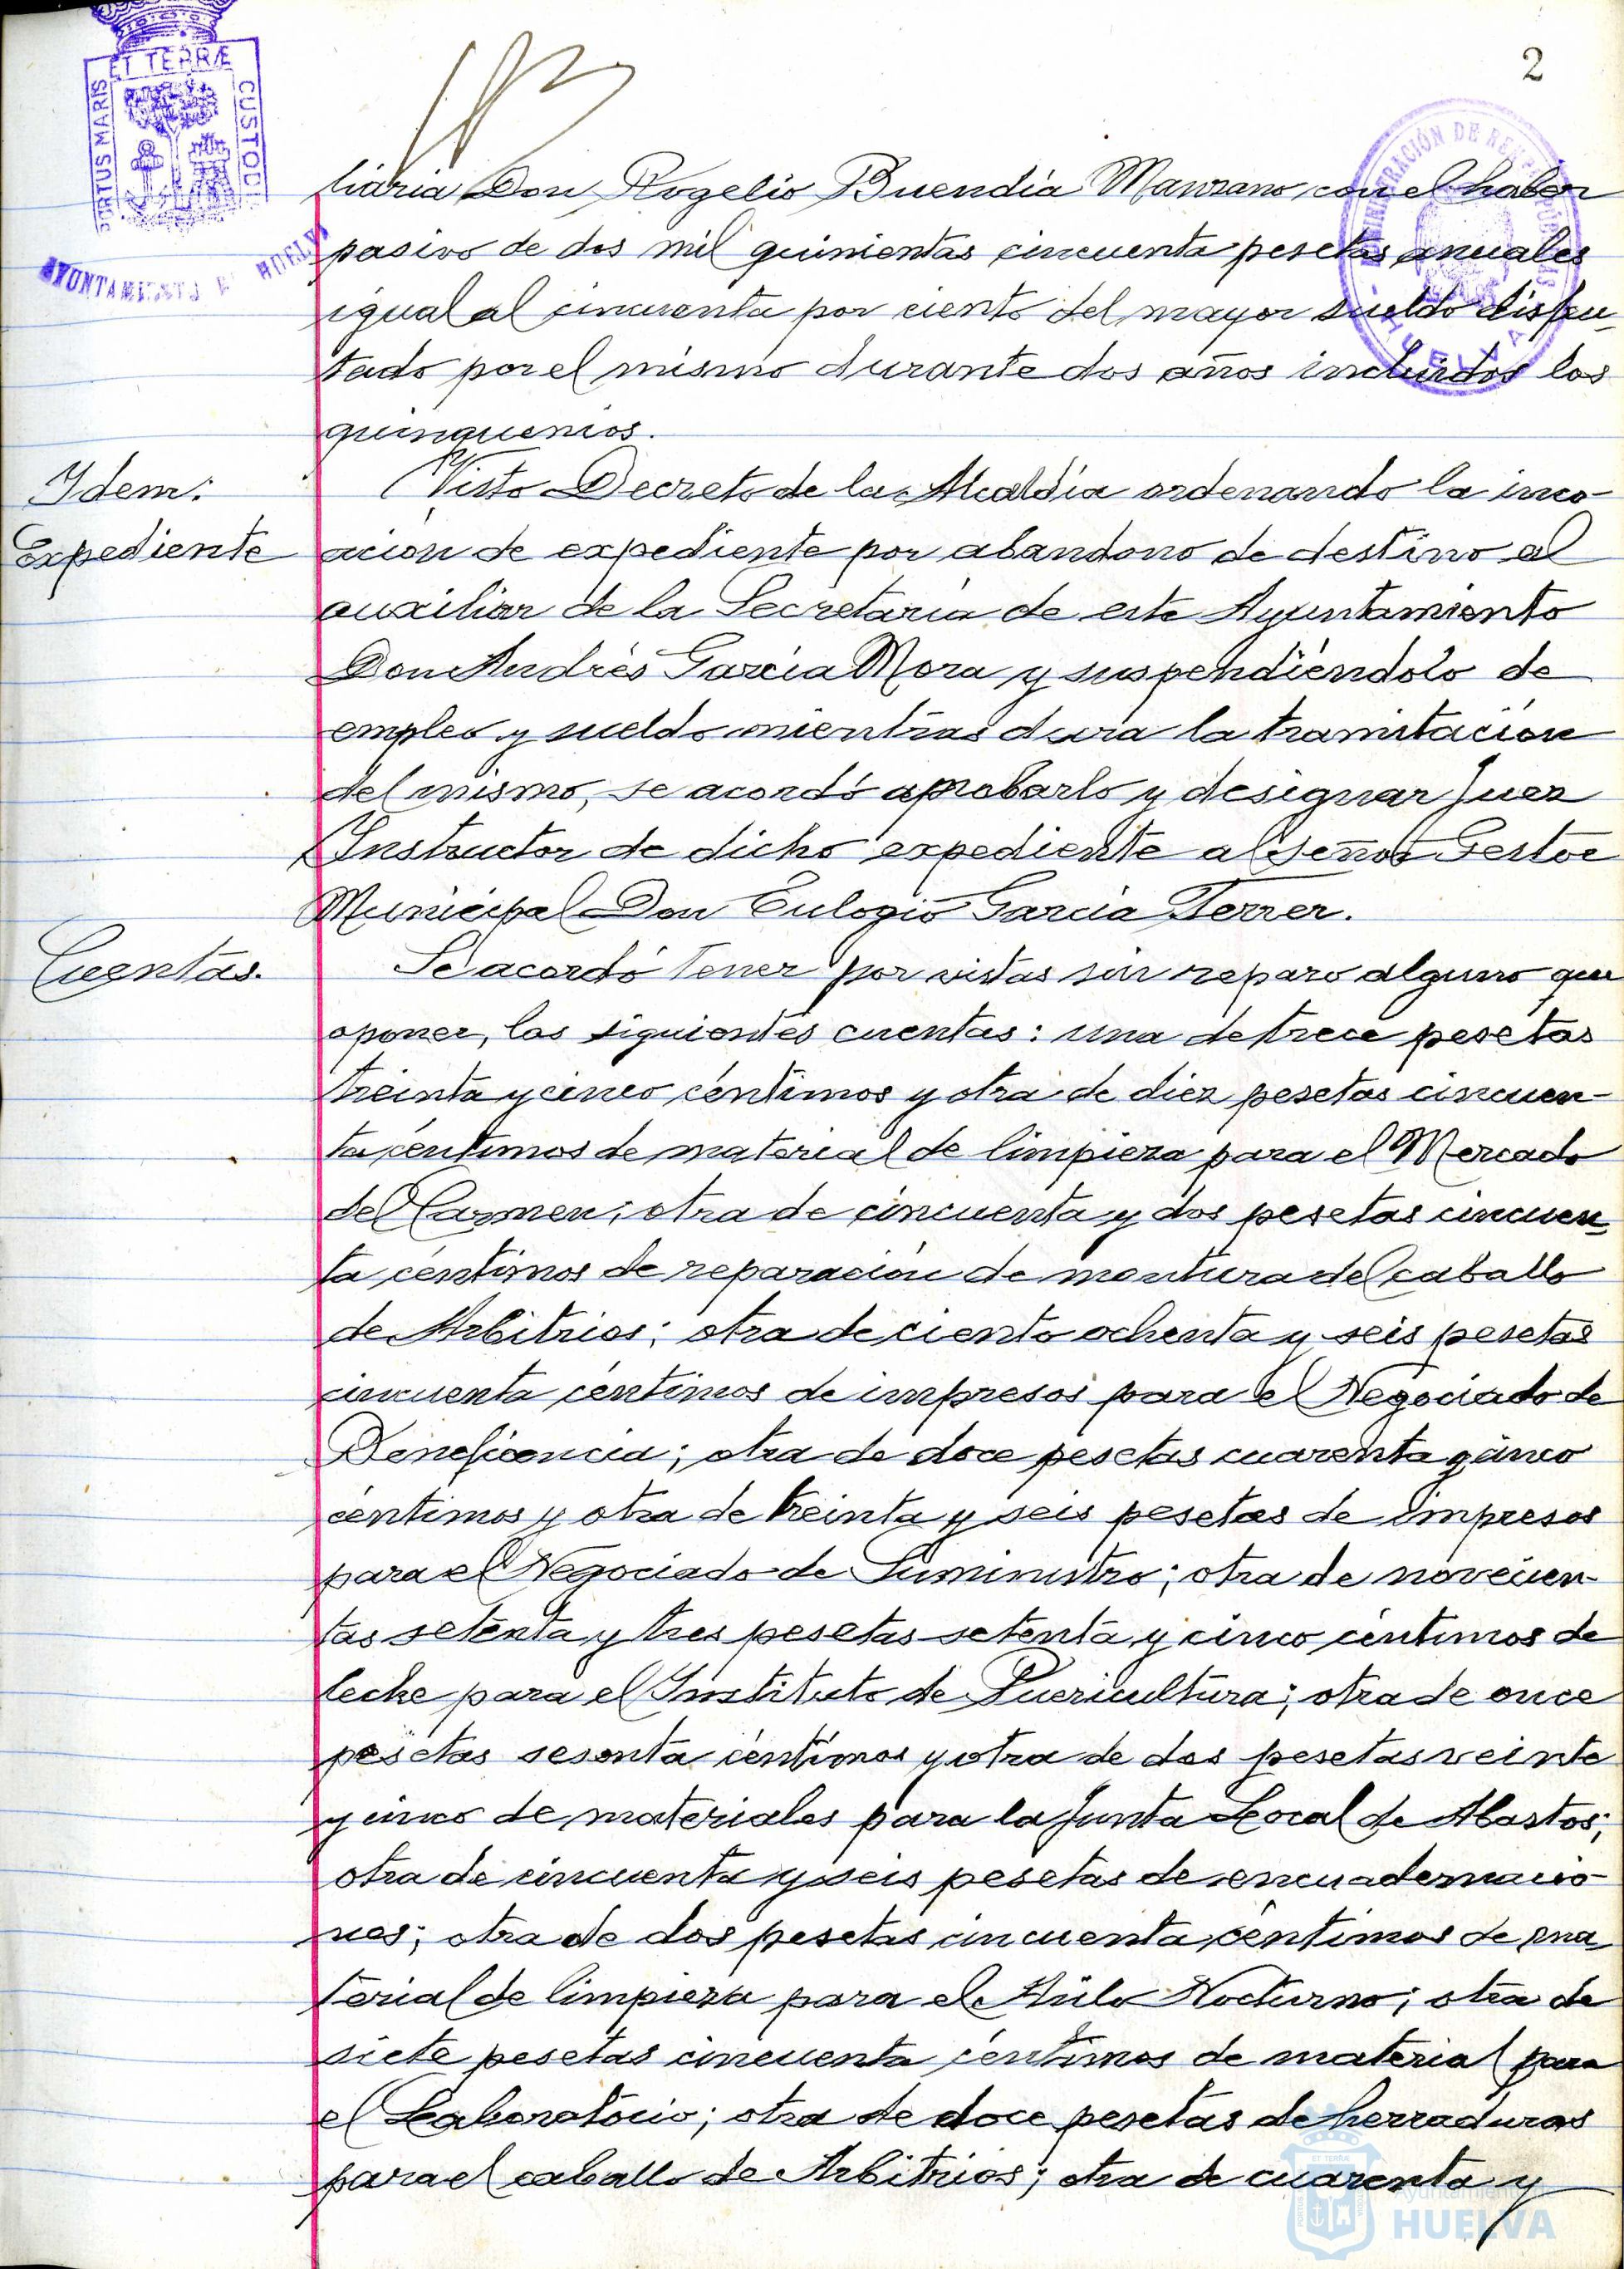 2
PORTUS MARIS
ET TERRÆ
CUSTODI
AYUNTAMIENTO DE HUELVA
ADMINISTRACIÓN DE
HUELVA
liaria Don Rogelio Buendía Manzano con el haber
pasivo de dos mil quinientas cincuenta pesetas anuales
igual al cincuenta por ciento del mayor sueldo disfru-
tado por el mismo durante dos años incluidos los
quinquenios.
Idem:
Expediente
Visto Decreto de la Alcaldía ordenando la inco-
ación de expediente por abandono de destino al
auxiliar de la Secretaría de este Ayuntamiento
Don Andrés García Mora y suspendiéndolo de
empleo y sueldo mientras dura la tramitación
del mismo, se acordó aprobarlo y designar Juez
Instructor de dicho expediente al Señor Gestor
Municipal Don Eulogio García Ferrer.
Cuentas.
Se acordó tener por vistas sin reparo alguno que
oponer, las siguientes cuentas: una de trece pesetas
treinta y cinco céntimos y otra de diez pesetas cincuen-
ta céntimos de material de limpieza para el Mercado
del Carmen; otra de cincuenta y dos pesetas cincuen-
ta céntimos de reparación de montura del caballo
de Arbitrios; otra de ciento ochenta y seis pesetas
cincuenta céntimos de impresos para el Negociado de
Beneficencia; otra de doce pesetas cuarenta y cinco
céntimos y otra de treinta y seis pesetas de impresos
para el Negociado de Suministro; otra de novecien-
tas setenta y tres pesetas setenta y cinco céntimos de
leche para el Instituto de Puericultura; otra de once
pesetas sesenta céntimos y otra de dos pesetas veinte
y cinco de materiales para la Junta Local de Abastos;
otra de cincuenta y seis pesetas de encuadernacio-
nes; otra de dos pesetas cincuenta céntimos de ma-
terial de limpieza para el Asilo Nocturno; otra de
siete pesetas cincuenta céntimos de material para
el Laboratorio; otra de doce pesetas de herraduras
para el caballo de Arbitrios; otra de cuarenta y
Ayuntamiento de
HUELVA